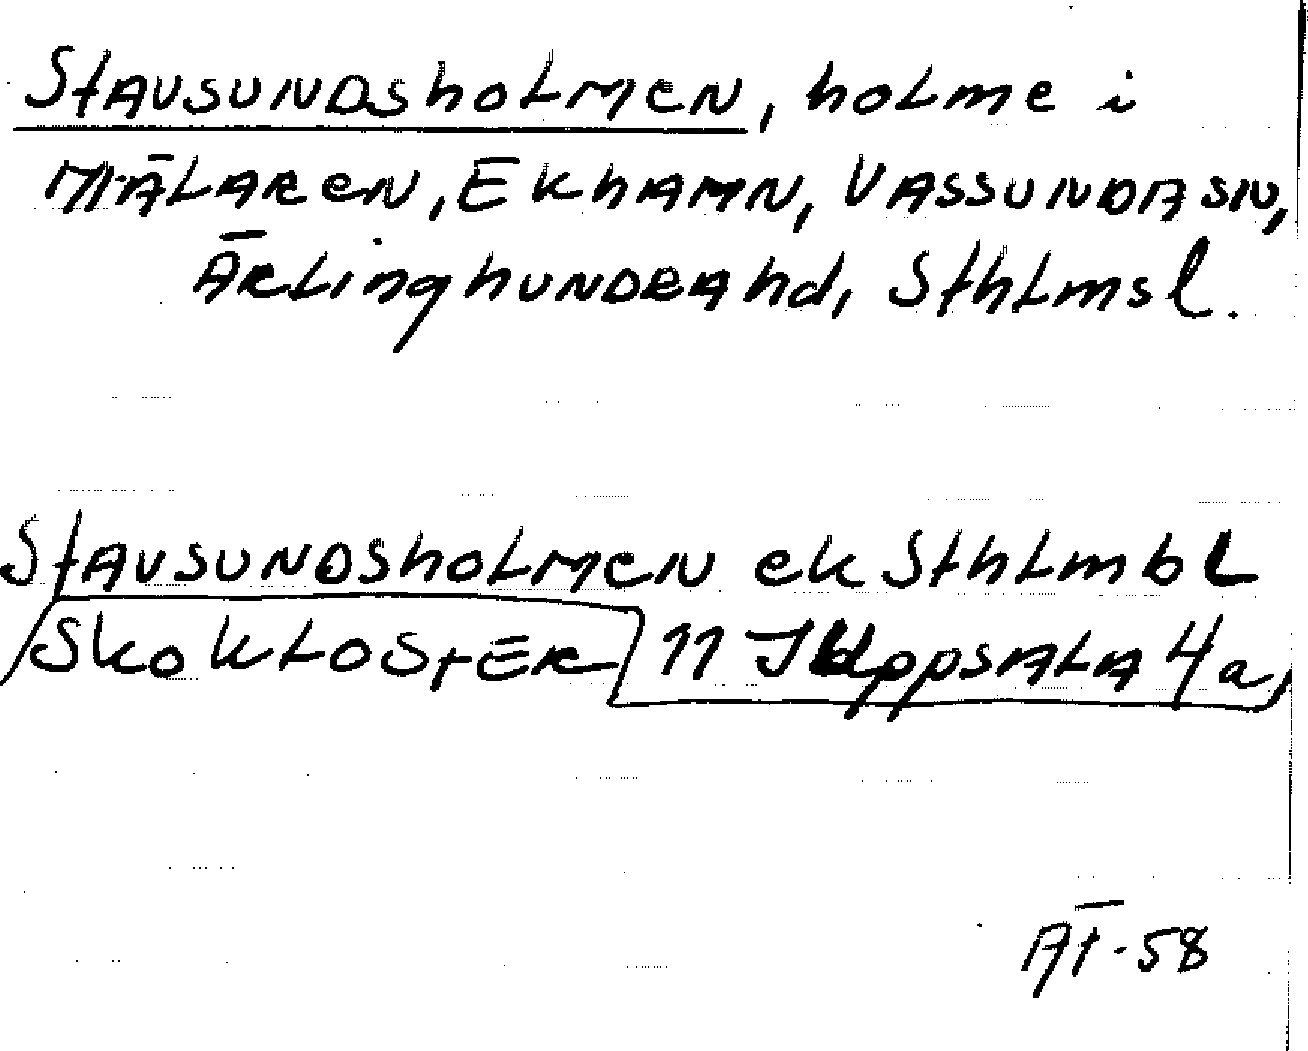 Stavsundsholmen, holme i
Mälaren, Ekhamn, Vassunda sn,
Ärlinghundra hd, Sthlms l.
Stavsundsholmen ek Sthlm bl
Skokloster 11 I Uppsala 4a,
ÄT-58